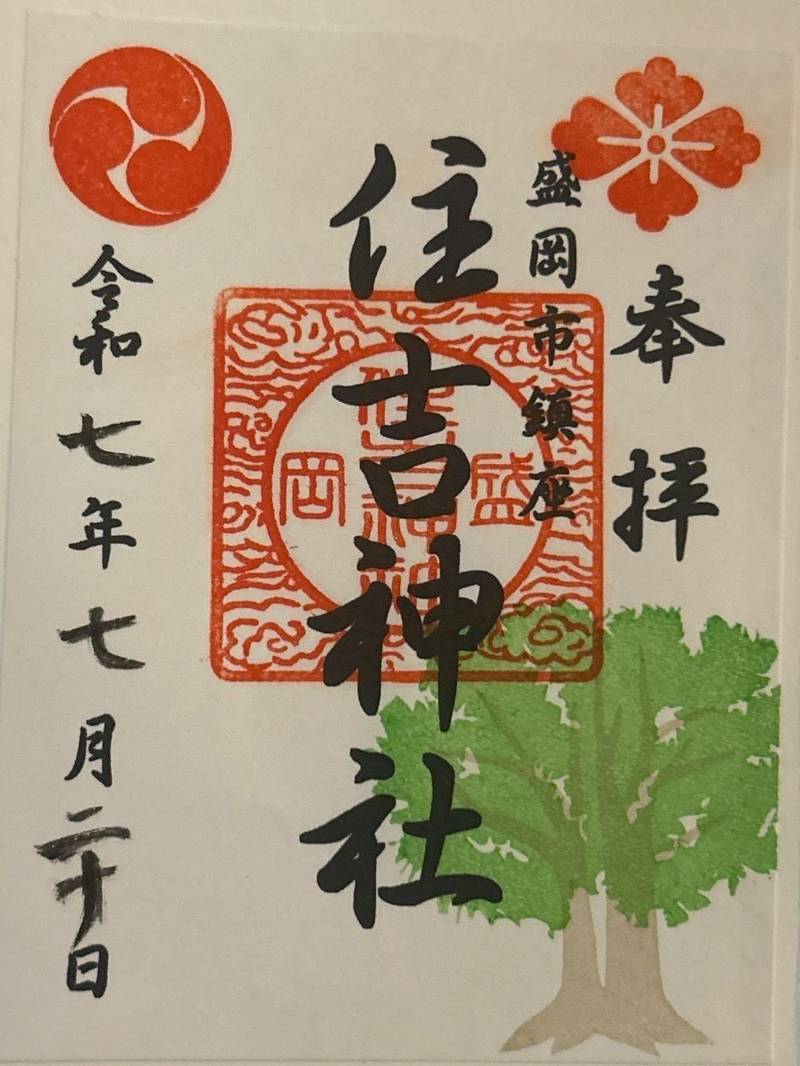 奉拝
盛岡市鎮座
住吉神社
盛
住吉神社
岡
令和七年七月二十日